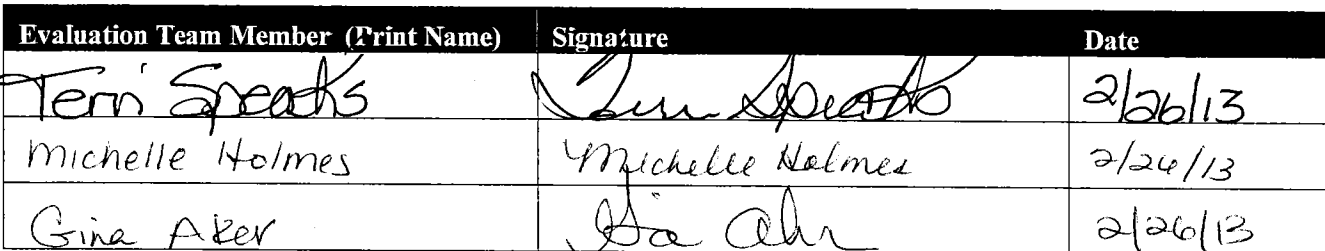 Evaluation Team Member (Print Name) Signature Date
Terri Speaks Terri Speaks 2/26/13
Michelle Holmes Michelle Holmes 2/26/13
Gina Aker 2/26/13